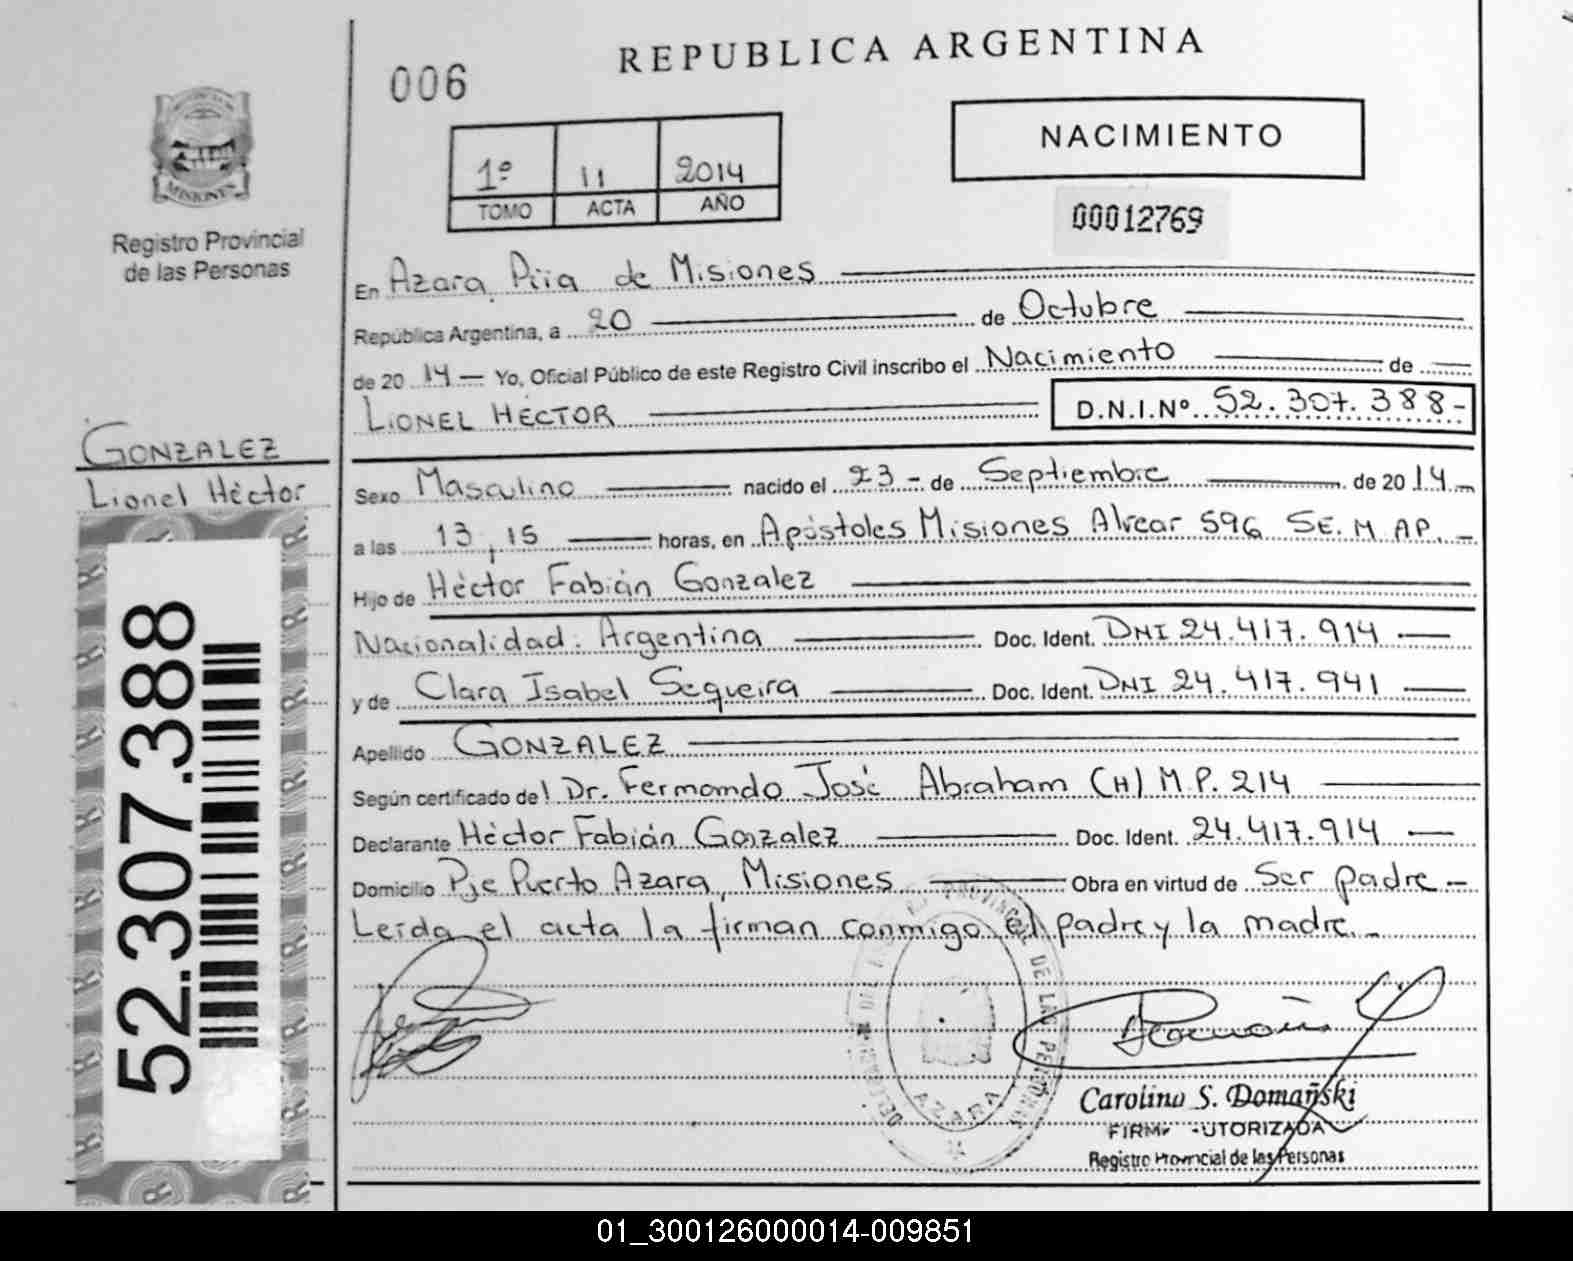 006
REPUBLICA ARGENTINA
1º 11 2014
TOMO ACTA AÑO
NACIMIENTO
00012769
MISIONES
Registro Provincial
de las Personas
En Azara, Pcia de Misiones
República Argentina, a 20 de Octubre
de 20 14 Yo, Oficial Público de este Registro Civil inscribo el Nacimiento de
LIONEL HÉCTOR D.N.I.Nº 52.307.388-
GONZALEZ
Lionel Héctor
Sexo Masculino nacido el 23 - de Septiembre de 20 14
a las 13,15 horas, en Apóstoles Misiones Alvear 596 SE.M.AP.
Hijo de Héctor Fabián Gonzalez
Nacionalidad: Argentina Doc. Ident. DNI 24.417.914
y de Clara Isabel Sequeira Doc. Ident. DNI 24.417.941
Apellido GONZALEZ
Según certificado del Dr. Fernando José Abraham (H) M.P. 214
Declarante Héctor Fabián Gonzalez Doc. Ident. 24.417.914
Domicilio Pje Puerto Azara, Misiones Obra en virtud de Ser padre -
Leída el acta la firman conmigo el padre y la madre.-
52.307.388
AZARA
Carolina S. Domañski
FIRMA AUTORIZADA
Registro Provincial de las Personas
01_300126000014-009851